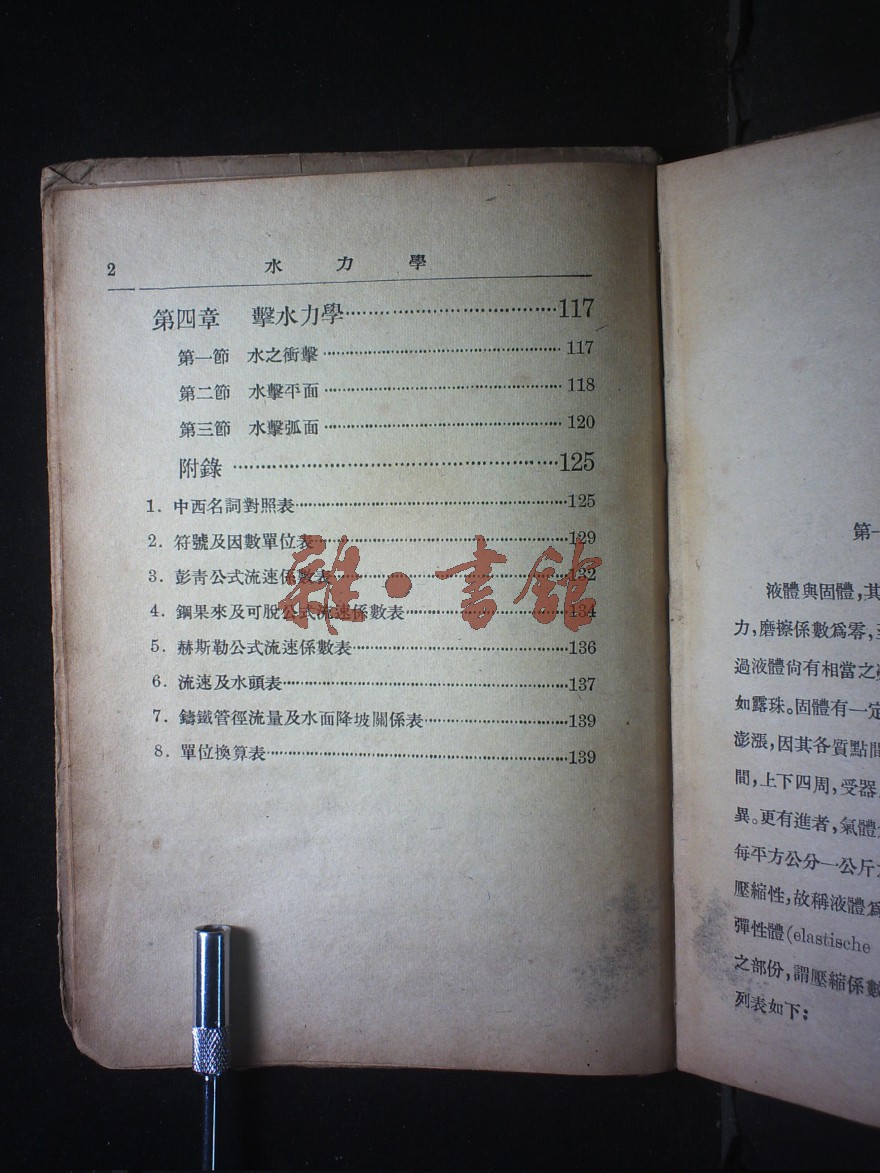 2 水力學
第四章 擊水力學………………………………117
第一節 水之衝擊………………………………117
第二節 水擊平面………………………………118
第三節 水擊弧面………………………………120
附錄………………………………125
1. 中西名詞對照表………………………………125
2. 符號及因數單位表………………………………129
3. 彭靑公式流速係數表………………………………132
4. 鋼果來及可脫公式流速係數表………………………………134
5. 赫斯勒公式流速係數表………………………………136
6. 流速及水頭表………………………………137
7. 鑄鐵管徑流量及水面降坡關係表………………………………139
8. 單位換算表………………………………139
雜·書館
第一
液體與固體,其
力,磨擦係數爲零,
過液體尙有相當之
如露珠。固體有一定
澎漲,因其各質點間
間,上下四周,受器
異。更有進者,氣體
每平方公分一公斤
壓縮性,故稱液體爲
彈性體(elastische
之部份,謂壓縮係數
列表如下: